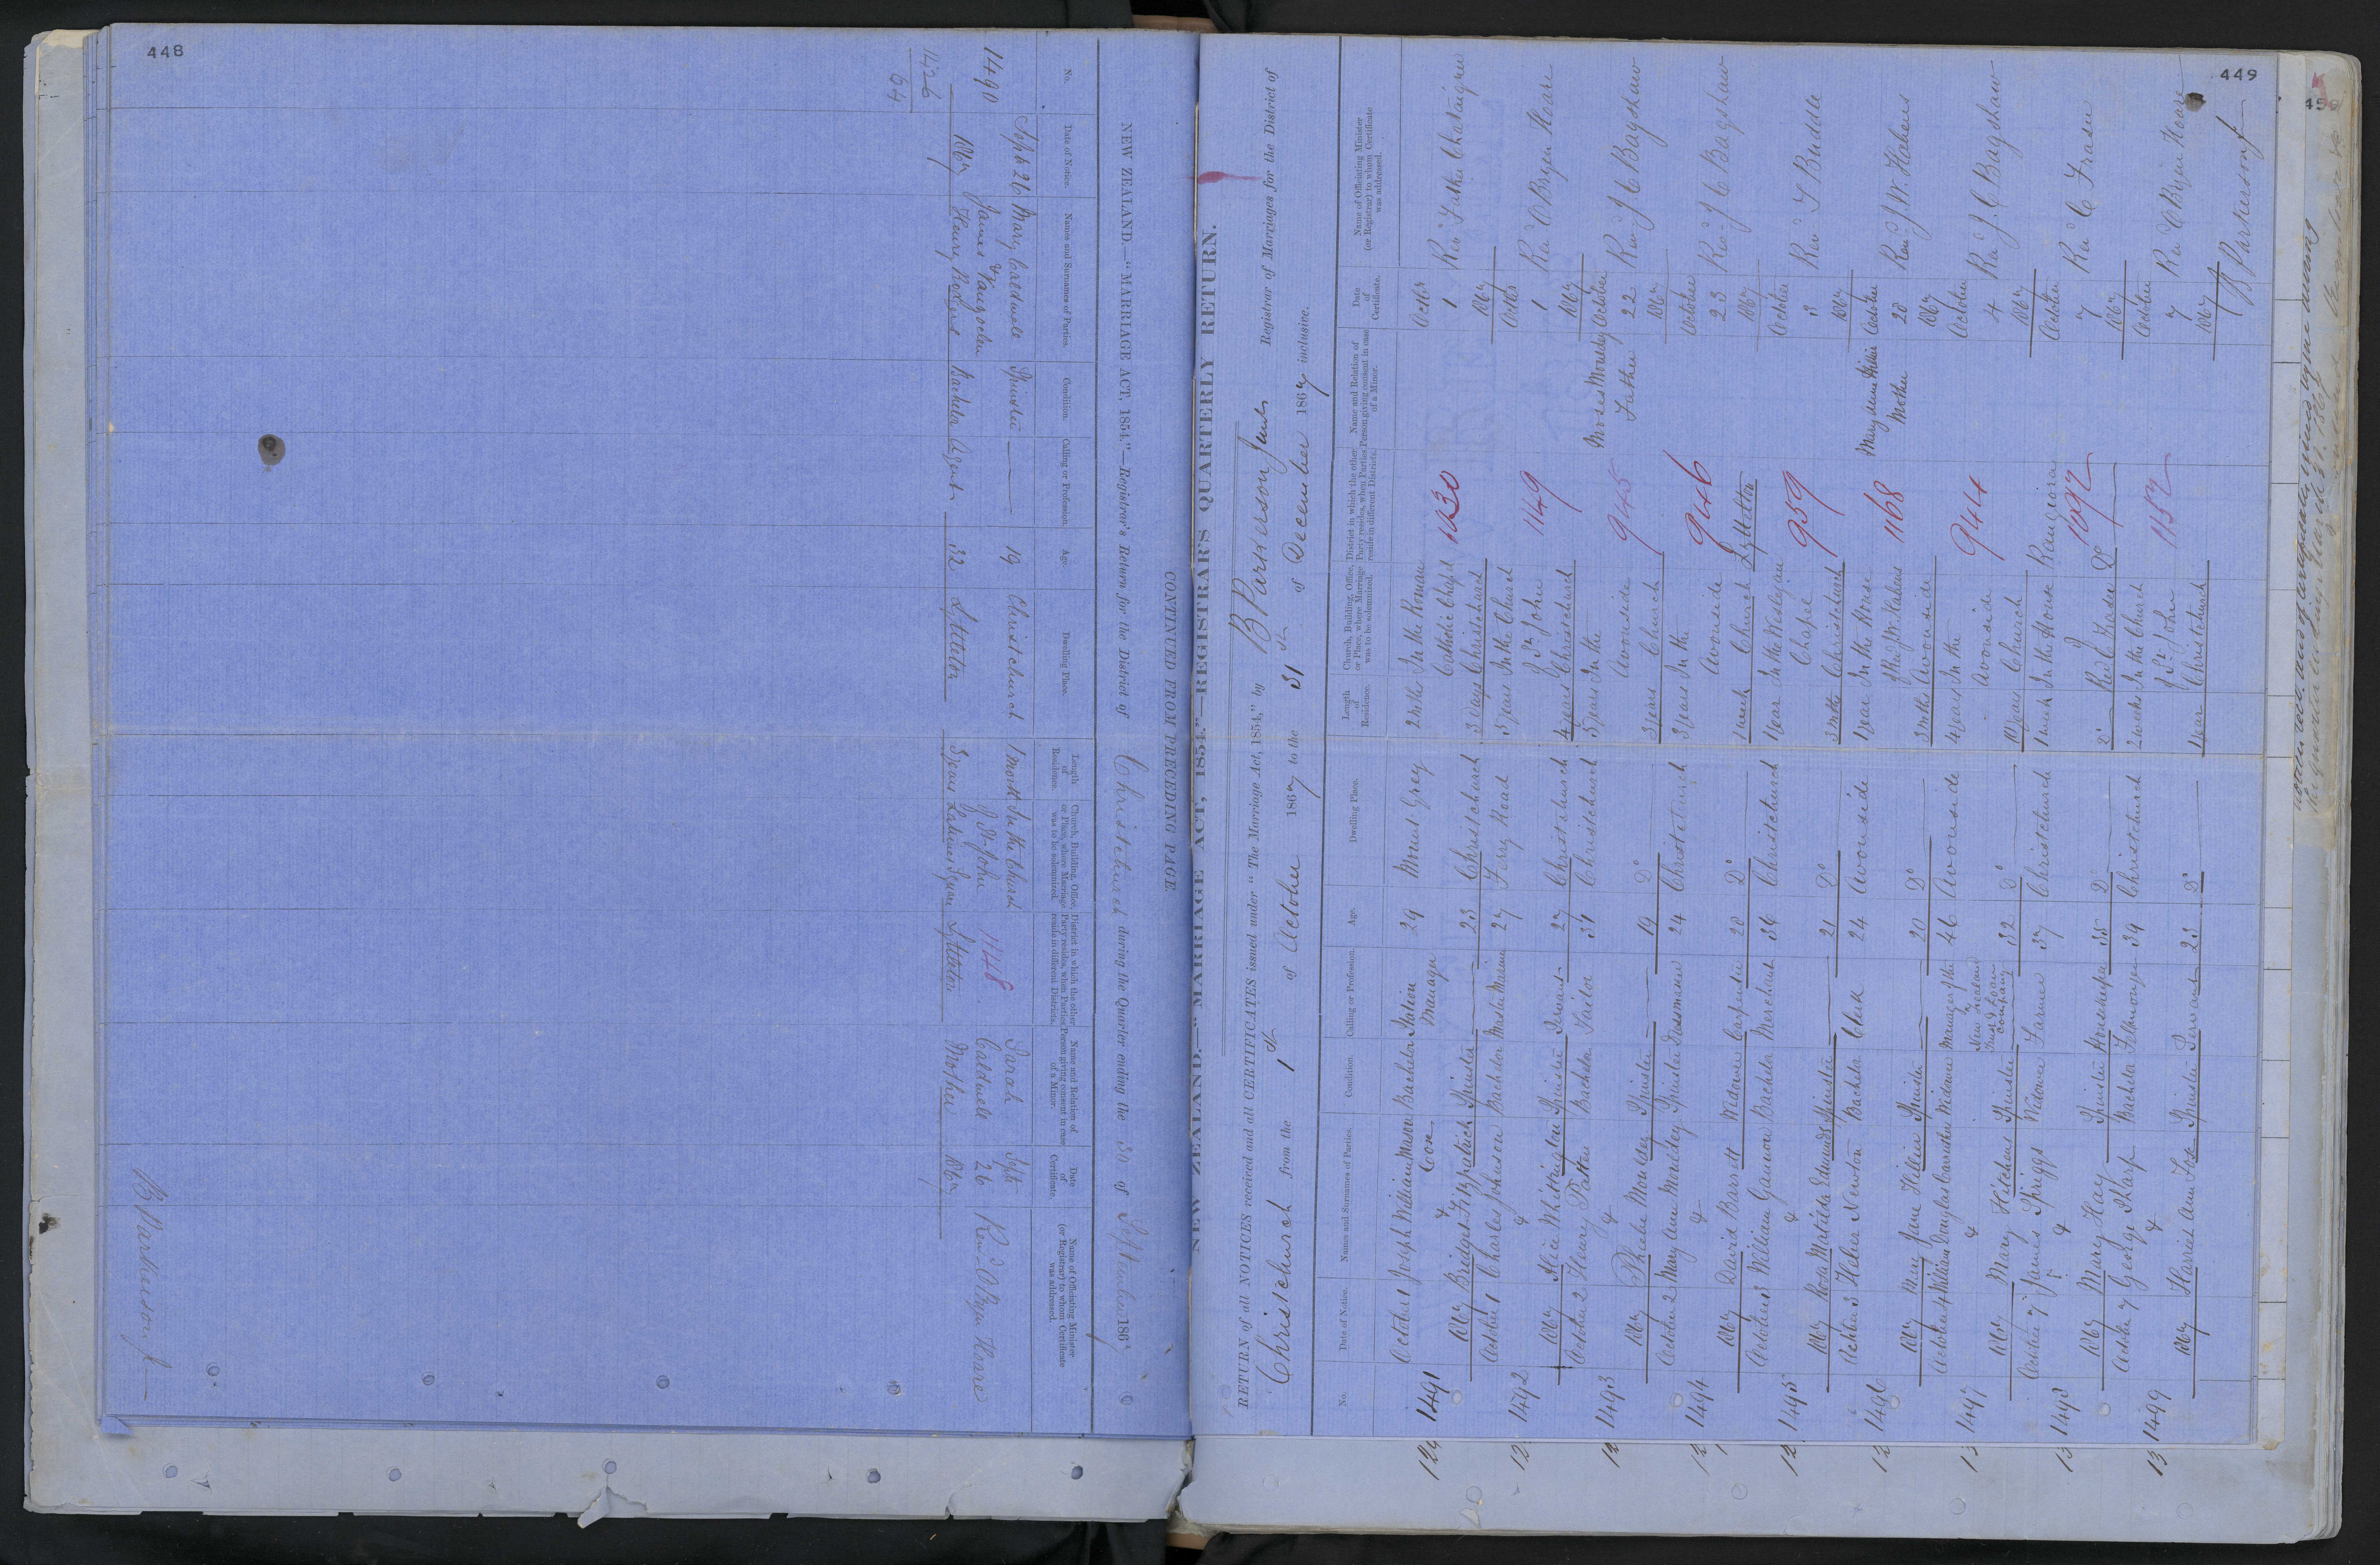 448
NEW ZEALAND.—"MARRIAGE ACT, 1854."—Registrar's Return for the District of Christchurch during the Quarter ending the 30 of September 186
CONTINUED FROM PRECEDING PAGE
No.
Date of Notice.
Names and Surnames of Parties.
Condition.
Calling or Profession.
Age.
Dwelling Place.
Length of Residence.
Church, Building, Office, or Place, where Marriage was to be solemnized.
District in which the other Party resides, when Parties reside in different Districts.
Name and Relation of Person giving consent in case of a Minor.
Date of Certificate.
Name of Officiating Minister (or Registrar) to whom Certificate was addressed.
1490
Sept 26 1867
Mary Caldwell
James &
Henry
Spinster
Bachelor
Agent
19
32
Christchurch
Lyttelton
1 month
3 years
In the Church
of St John
1148
Lyttelton
Sarah
Caldwell
Mother
Sept
26
1867
Revd O'Bryen Hoare
1426
64
B Parkerson
449
NEW ZEALAND.—"MARRIAGE ACT, 1854."—REGISTRAR'S QUARTERLY RETURN.
RETURN of all NOTICES received and all CERTIFICATES issued under "The Marriage Act, 1854," by B Parkerson Junr Registrar of Marriages for the District of
Christchurch from the 1st of October 1867 to the 31st of December 1867 inclusive.
No.
Date of Notice.
Names and Surnames of Parties.
Condition.
Calling or Profession.
Age.
Dwelling Place.
Length of Residence.
Church, Building, Office, or Place, where Marriage was to be solemnized.
District in which the other Party resides, when Parties reside in different Districts.
Name and Relation of Person giving consent in case of a Minor.
Date of Certificate.
Name of Officiating Minister (or Registrar) to whom Certificate was addressed.
1491
October 1 Joseph William Mason Bachelor Station 29 Mount Grey 2 mths In the Roman Octbr 1 Revd Father Chataigner
& Manager Catholic Chapel 1130
1867 Bridget Fitzpatrick Spinster 23 Christchurch 3 days Christchurch 1867
1492
October 1 Charles Johnson Bachelor Master Mariner 27 Ferry Road 3 years In the Church Octbr 1 Revd O'Bryen Hoare
& of St John 1149
1867 Alice Whittington Spinster Servant 27 Christchurch 4 years Christchurch 1867
1493
October 2 Henry Patten Bachelor Tailor 31 Christchurch 5 years In the Moses Mouldey October 22 Revd J C Bagshaw
& Avonside 945 Father
1867 Phoebe Mouldey Spinster 19 Do 3 years Church 1867
1494
October 2 Mary Ann Mouldey Spinster Dressmaker 24 Christchurch 3 years In the October 23 Revd J C Bagshaw
& Avonside 946
1867 David Barrett Widower Carpenter 28 Do 1 week Church Lyttelton 1867
1495
October 3 William Gannon Bachelor Merchant 36 Christchurch 1 year In the Wesleyan October 3 Revd J Buddle
& Chapel 959
1867 Rosa Matilda Edwards Spinster 21 Do 3 mths Christchurch 1867
1496
October 3 Heber Newton Bachelor Clerk 24 Avonside 1 year In the House October 28 Revd J.W. Habens
of Revd J.W. Habens 1168 Mother
1867 May Jane Hillier Spinster 20 Do 3 mths Avonside 1867
1497
October 4 William Douglas Carruthers Widower Manager of the 46 Avonside 4 years In the October 4 Revd J.C Bagshaw
& New Zealand Avonside 944
Trust & Loan
1867 Mary Hitchens Spinster Company 32 Do 10 years Church 1867
1498
October 7 James Spriggs Widower Farmer 37 Christchurch 1 week In the House Rangiora October 7 Revd C Fraser
& of 1092
1867 Mary Hay Spinster Housekeeper 35 Do Do Revd C Fraser Do 1867
1499
October 7 George Bachelor 39 Christchurch 2 weeks In the Church October 7 Revd O'Bryen Hoare
& of St John 1152
1867 Harriet Ann Spinster Servant 23 Do 1 year Christchurch 1867
B Parkerson